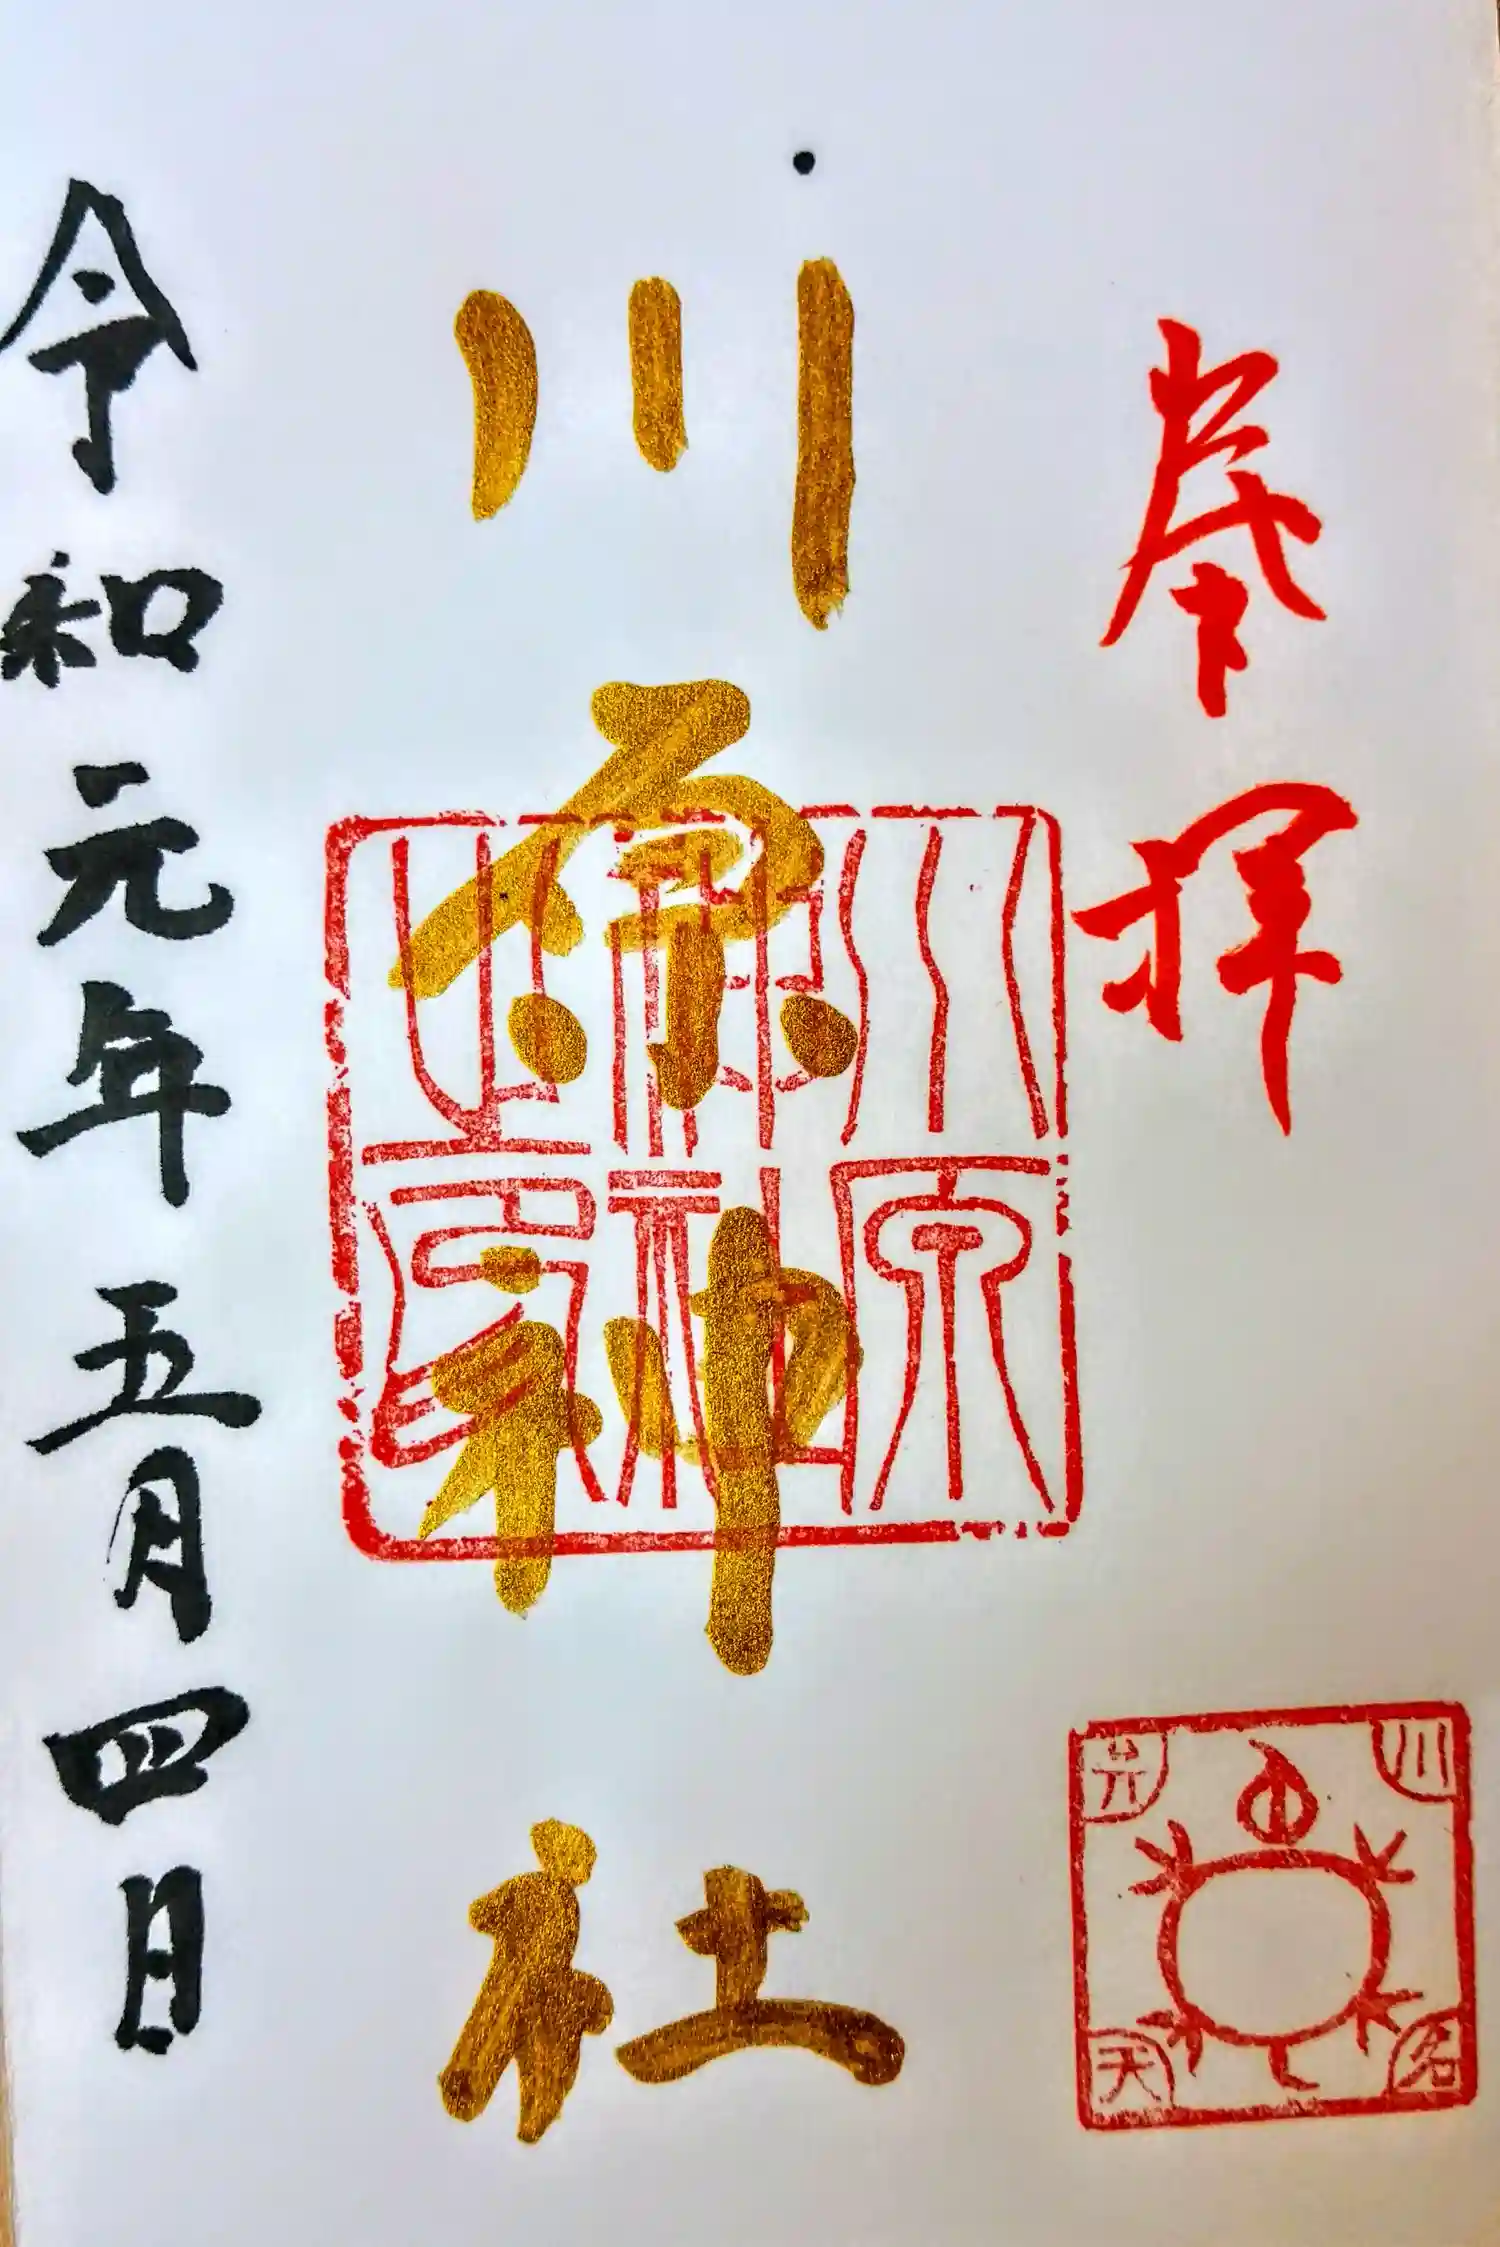 奉拝
川原神社
川原
神社
之印
川
名
弁
天
令和元年五月四日